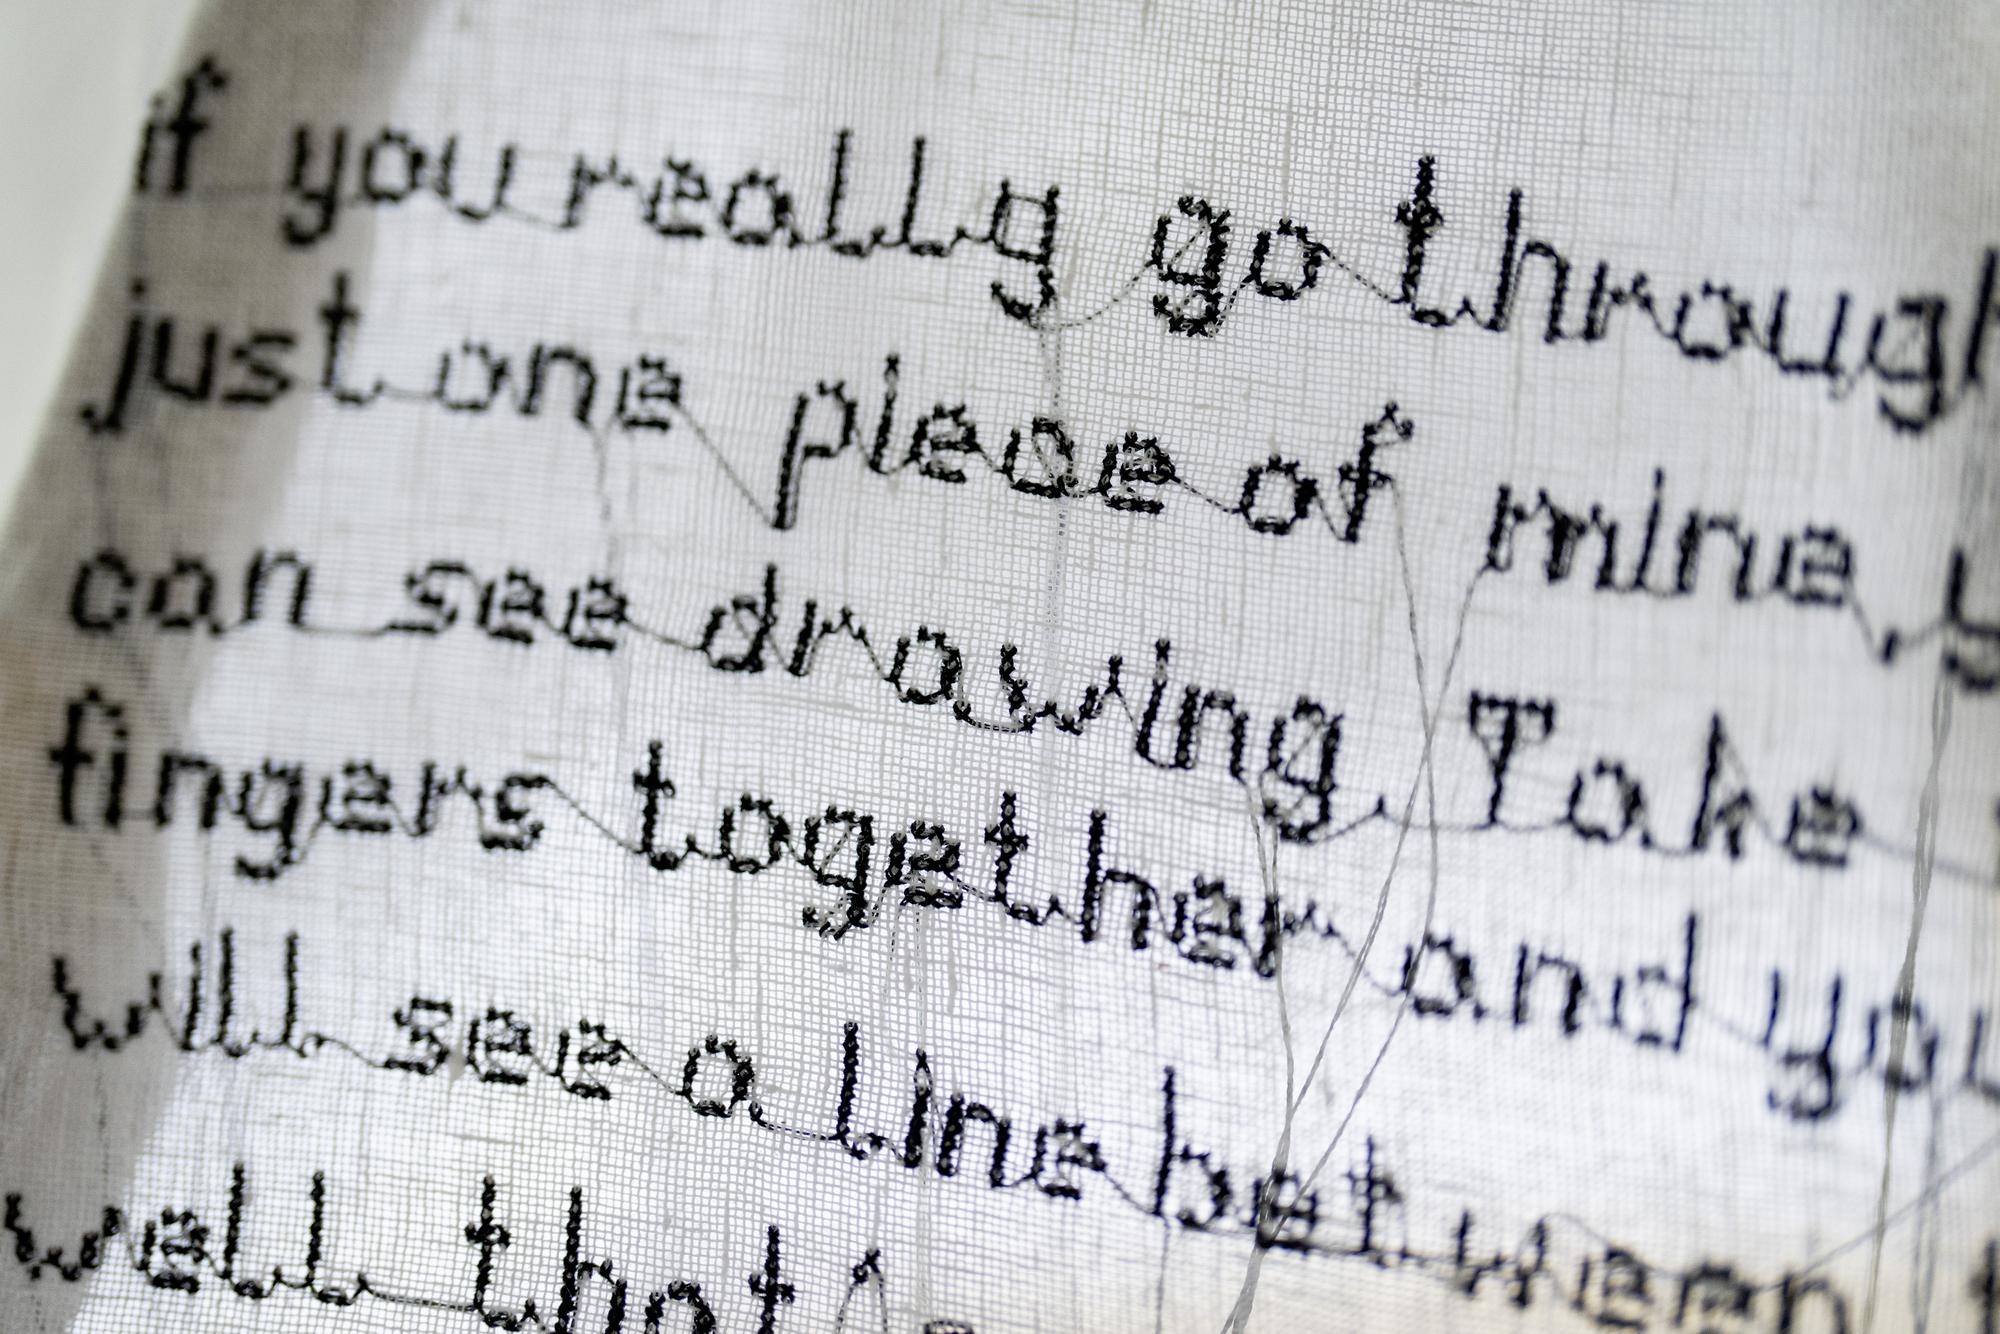 if you really go through
just one piece of mine, y
can see drawing. Take
fingers together and you
will see a line between
well that